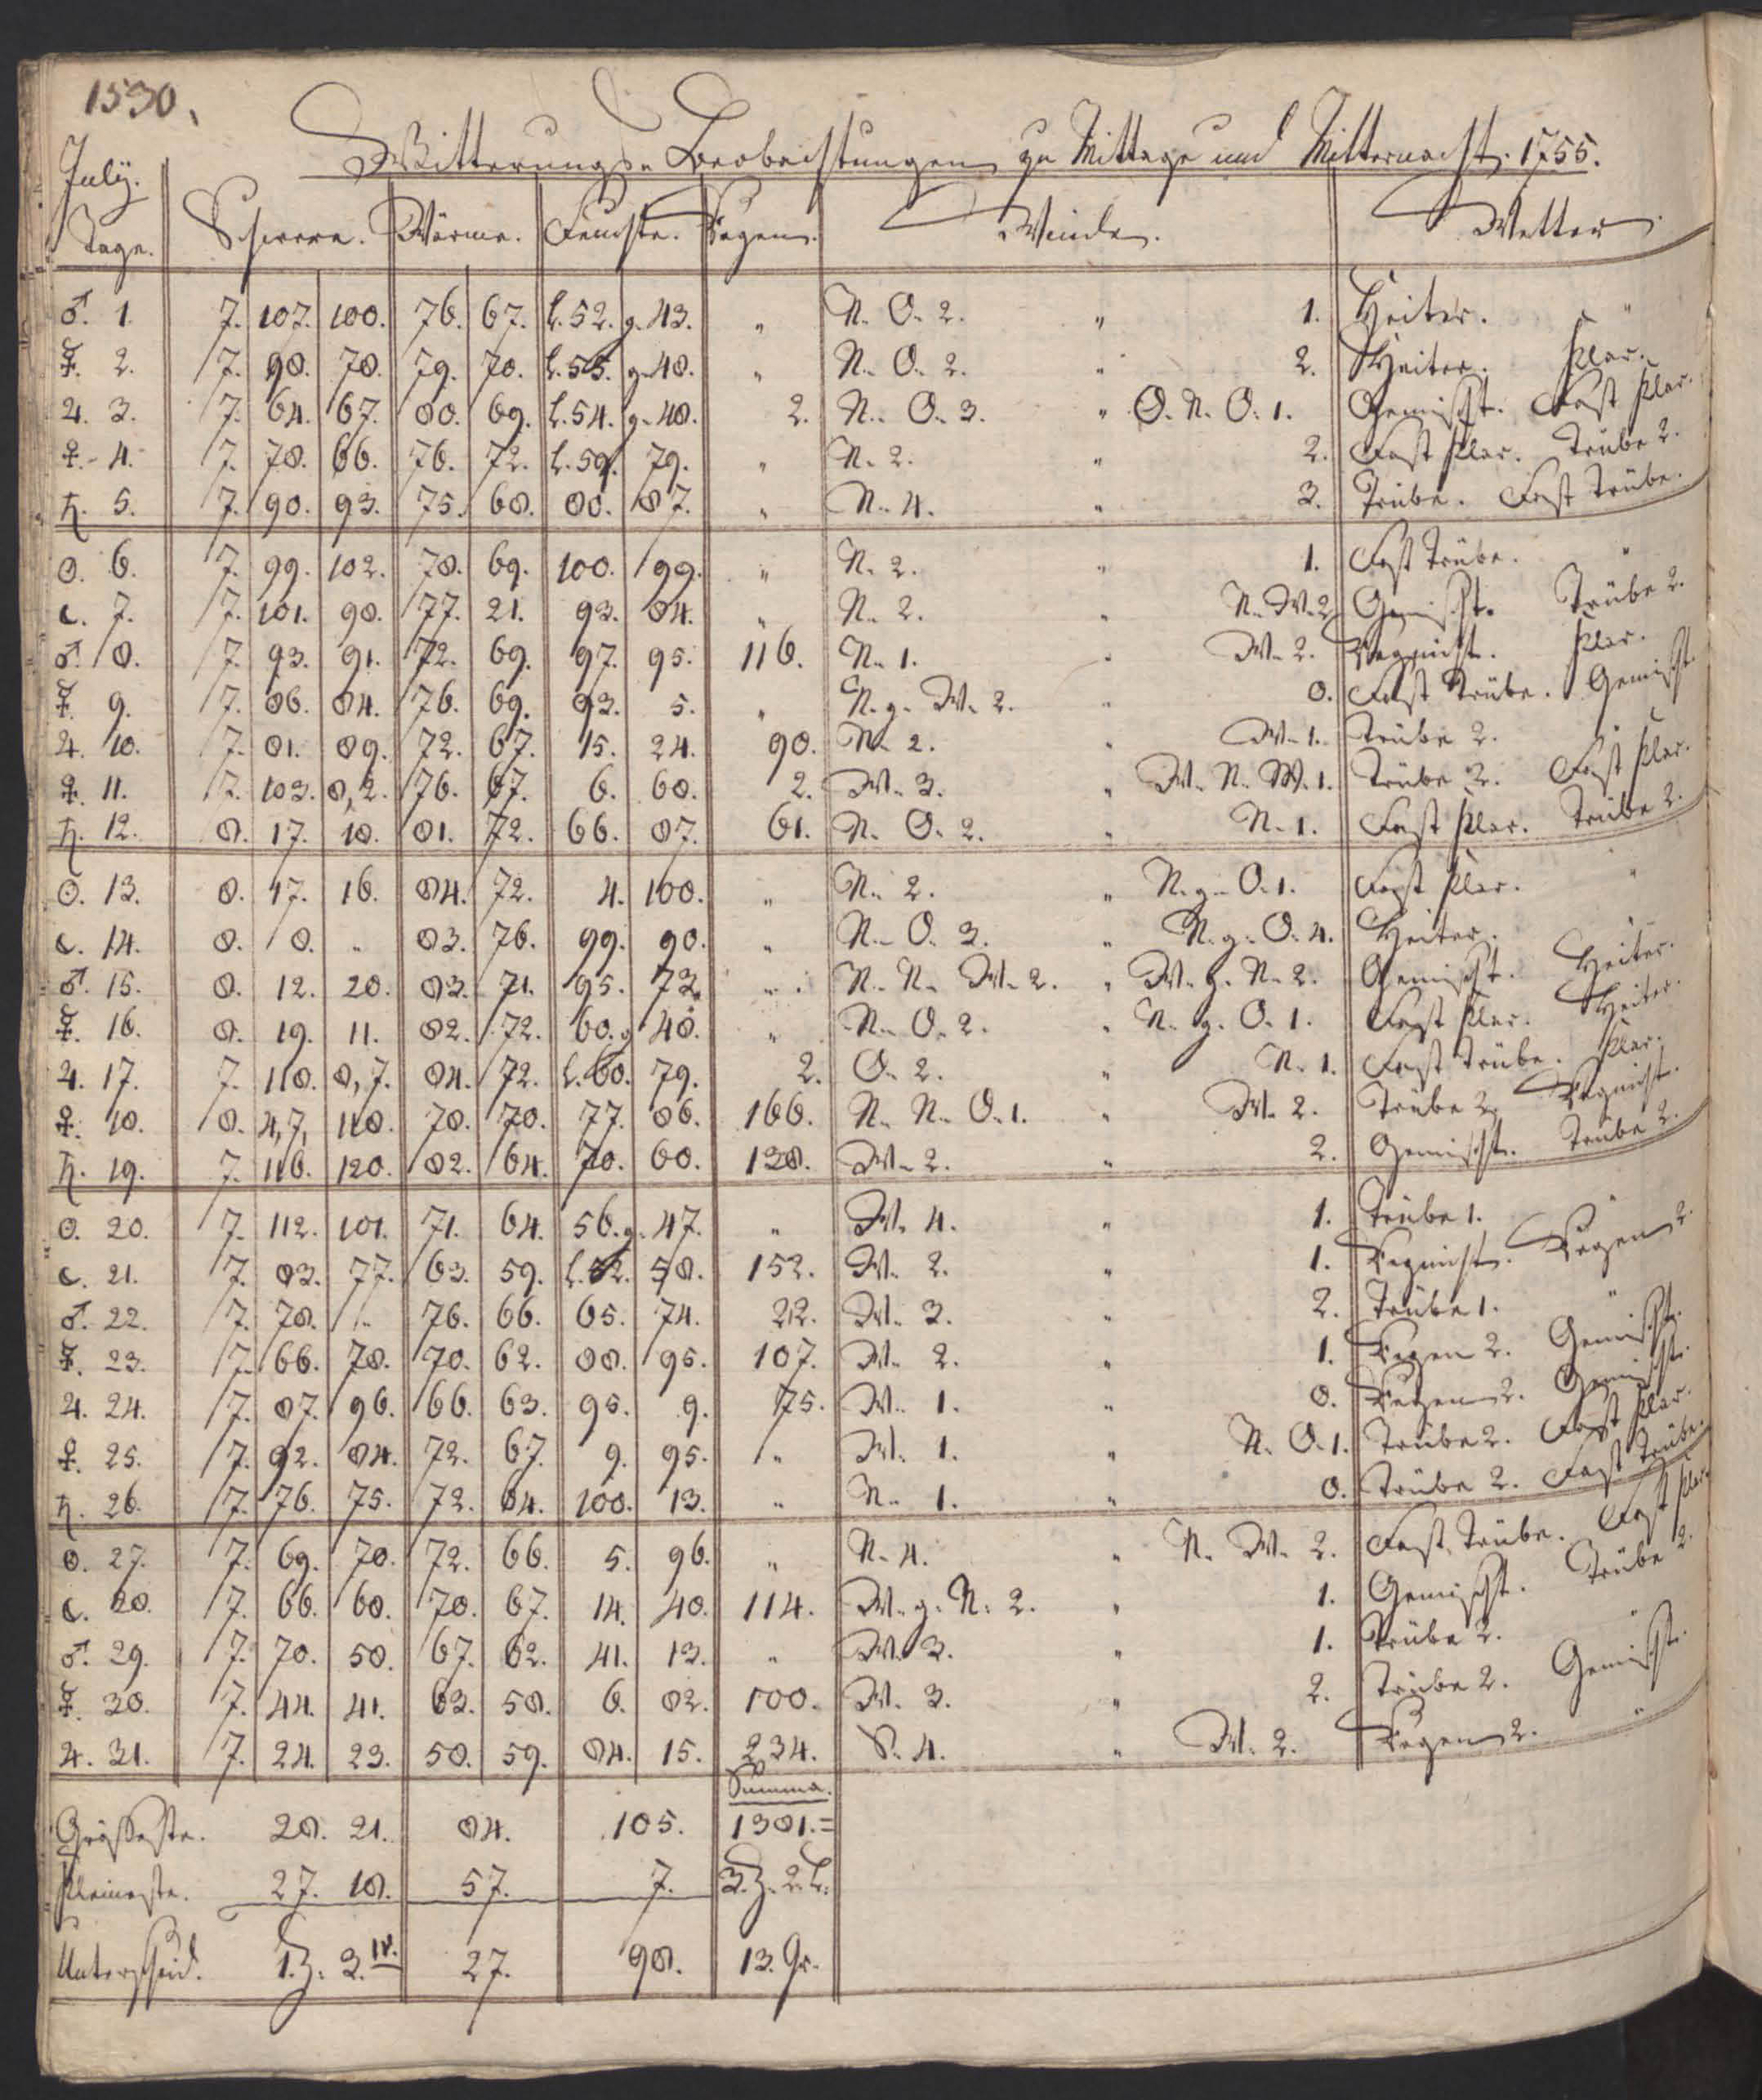 1530.
Witterungs-Beobachtungen zu Mittage und Mitternacht. 1755.
July.
Tage. Schwere. Wärme. Feuchte. Regen. Winde. Wetter.
♂. 1. 7. 107. 100. 76. 67. l. 52. g. 43. " N. O. 2. " 1. Heiter. "
☿. 2. 7. 98. 78. 79. 70. l. 55. g. 48. " N. O. 2. " 2. Heiter. Klar.
♃. 3. 7. 64. 67. 80. 69. l. 54. g. 48. 2. N. O. 3. " O. N. O. 1. Gemischt. Fast klar.
♀. 4. 7. 78. 66. 76. 72. l. 59. 79. " N. 2. " 2. Fast klar. Trübe 2.
♄. 5. 7. 90. 93. 75. 68. 80. 87. " N. 4. " 3. Trübe. Fast trübe.
☉. 6. 7. 99. 102. 78. 69. 100. 99. " N. 2. " 1. Fast trübe. "
☾. 7. 7. 101. 98. 77. 21. 93. 84. " N. 2. " N. W. 2. Gemischt. Trübe 2.
♂. 8. 7. 93. 91. 72. 69. 97. 95. 116. N. 1. " W. 2. Regnicht. Klar.
☿. 9. 7. 86. 84. 76. 69. 93. 5. " N. g. W. 2. " 0. Fast trübe. Gemischt.
♃. 10. 7. 81. 89. 72. 67. 15. 24. 90. N. 2. " W. 1. Trübe 2. "
♀. 11. 7. 103. 8,2. 76. 67. 6. 68. 2. W. 3. " W. N. W. 1. Trübe 2. Fast klar.
♄. 12. 8. 17. 18. 81. 72. 66. 87. 61. N. O. 2. " N. 1. Fast klar. Trübe 2.
☉. 13. 8. 17. 16. 84. 72. 4. 100. " N. 2. " N. g. O. 1. Fast klar. "
☾. 14. 8. 8. " 83. 76. 99. 90. " N. O. 3. " N. g. O. 4. Heiter. "
♂. 15. 8. 12. 20. 83. 71. 95. 73. " N. N. W. 2. " W. g. N. 2. Gemischt. Heiter.
☿. 16. 8. 19. 11. 82. 72. 60. g. 48. " N. O. 2. " N. g. O. 1. Fast klar. Heiter.
♃. 17. 7. 118. 8,7. 84. 72. l. 60. 79. 2. O. 2. " N. 1. Fast trübe. Klar.
♀. 18. 8. 4,7, 118. 78. 70. 77. 86. 166. N. N. O. 1. " W. 2. Trübe 2. Regnicht.
♄. 19. 7. 116. 120. 82. 64. 70. 60. 138. W. 2. " 2. Gemischt. Trübe 2.
☉. 20. 7. 112. 101. 71. 64. 56. g. 47. " W. 4. " 1. Trübe 1. "
☾. 21. 7. 83. 77. 63. 59. l. 52. 58. 152. W. 2. " 1. Regnicht. Regen 2.
♂. 22. 7. 78. " 76. 66. 65. 74. 22. W. 3. " 2. Trübe 1. "
☿. 23. 7. 66. 78. 70. 62. 88. 95. 107. W. 2. " 1. Regen 2. Gemischt.
♃. 24. 7. 87. 96. 66. 63. 95. 9. 75. W. 1. " 0. Regen 2. Gemischt.
♀. 25. 7. 92. 84. 72. 67. 9. 95. " W. 1. " N. O. 1. Trübe 2. Fast klar.
♄. 26. 7. 76. 75. 72. 64. 100. 13. " N. 1. " 0. Trübe 2. Fast trübe.
☉. 27. 7. 69. 70. 72. 66. 5. 96. " N. 4. " N. W. 2. Fast trübe. Fast klar.
☾. 28. 7. 66. 68. 70. 67. 14. 40. 114. W. g. N. 2. " 1. Gemischt. Trübe 2.
♂. 29. 7. 70. 58. 67. 62. 41. 13. " W. 3. " 1. Trübe 2. "
☿. 30. 7. 44. 41. 63. 58. 6. 82. 100. W. 3. " 2. Trübe 2. Gemischt.
♃. 31. 7. 24. 23. 58. 59. 84. 15. 234. S. 4. " W. 2. Regen 2. "
Summa.
Grösseste. 28. 21. 84. 105. 1381.=
Kleineste. 27. 18. 57. 7. 3. Z. 2. L.
Unterscheid. 1. Z. 3. IV. 27. 98. 13. Gr.